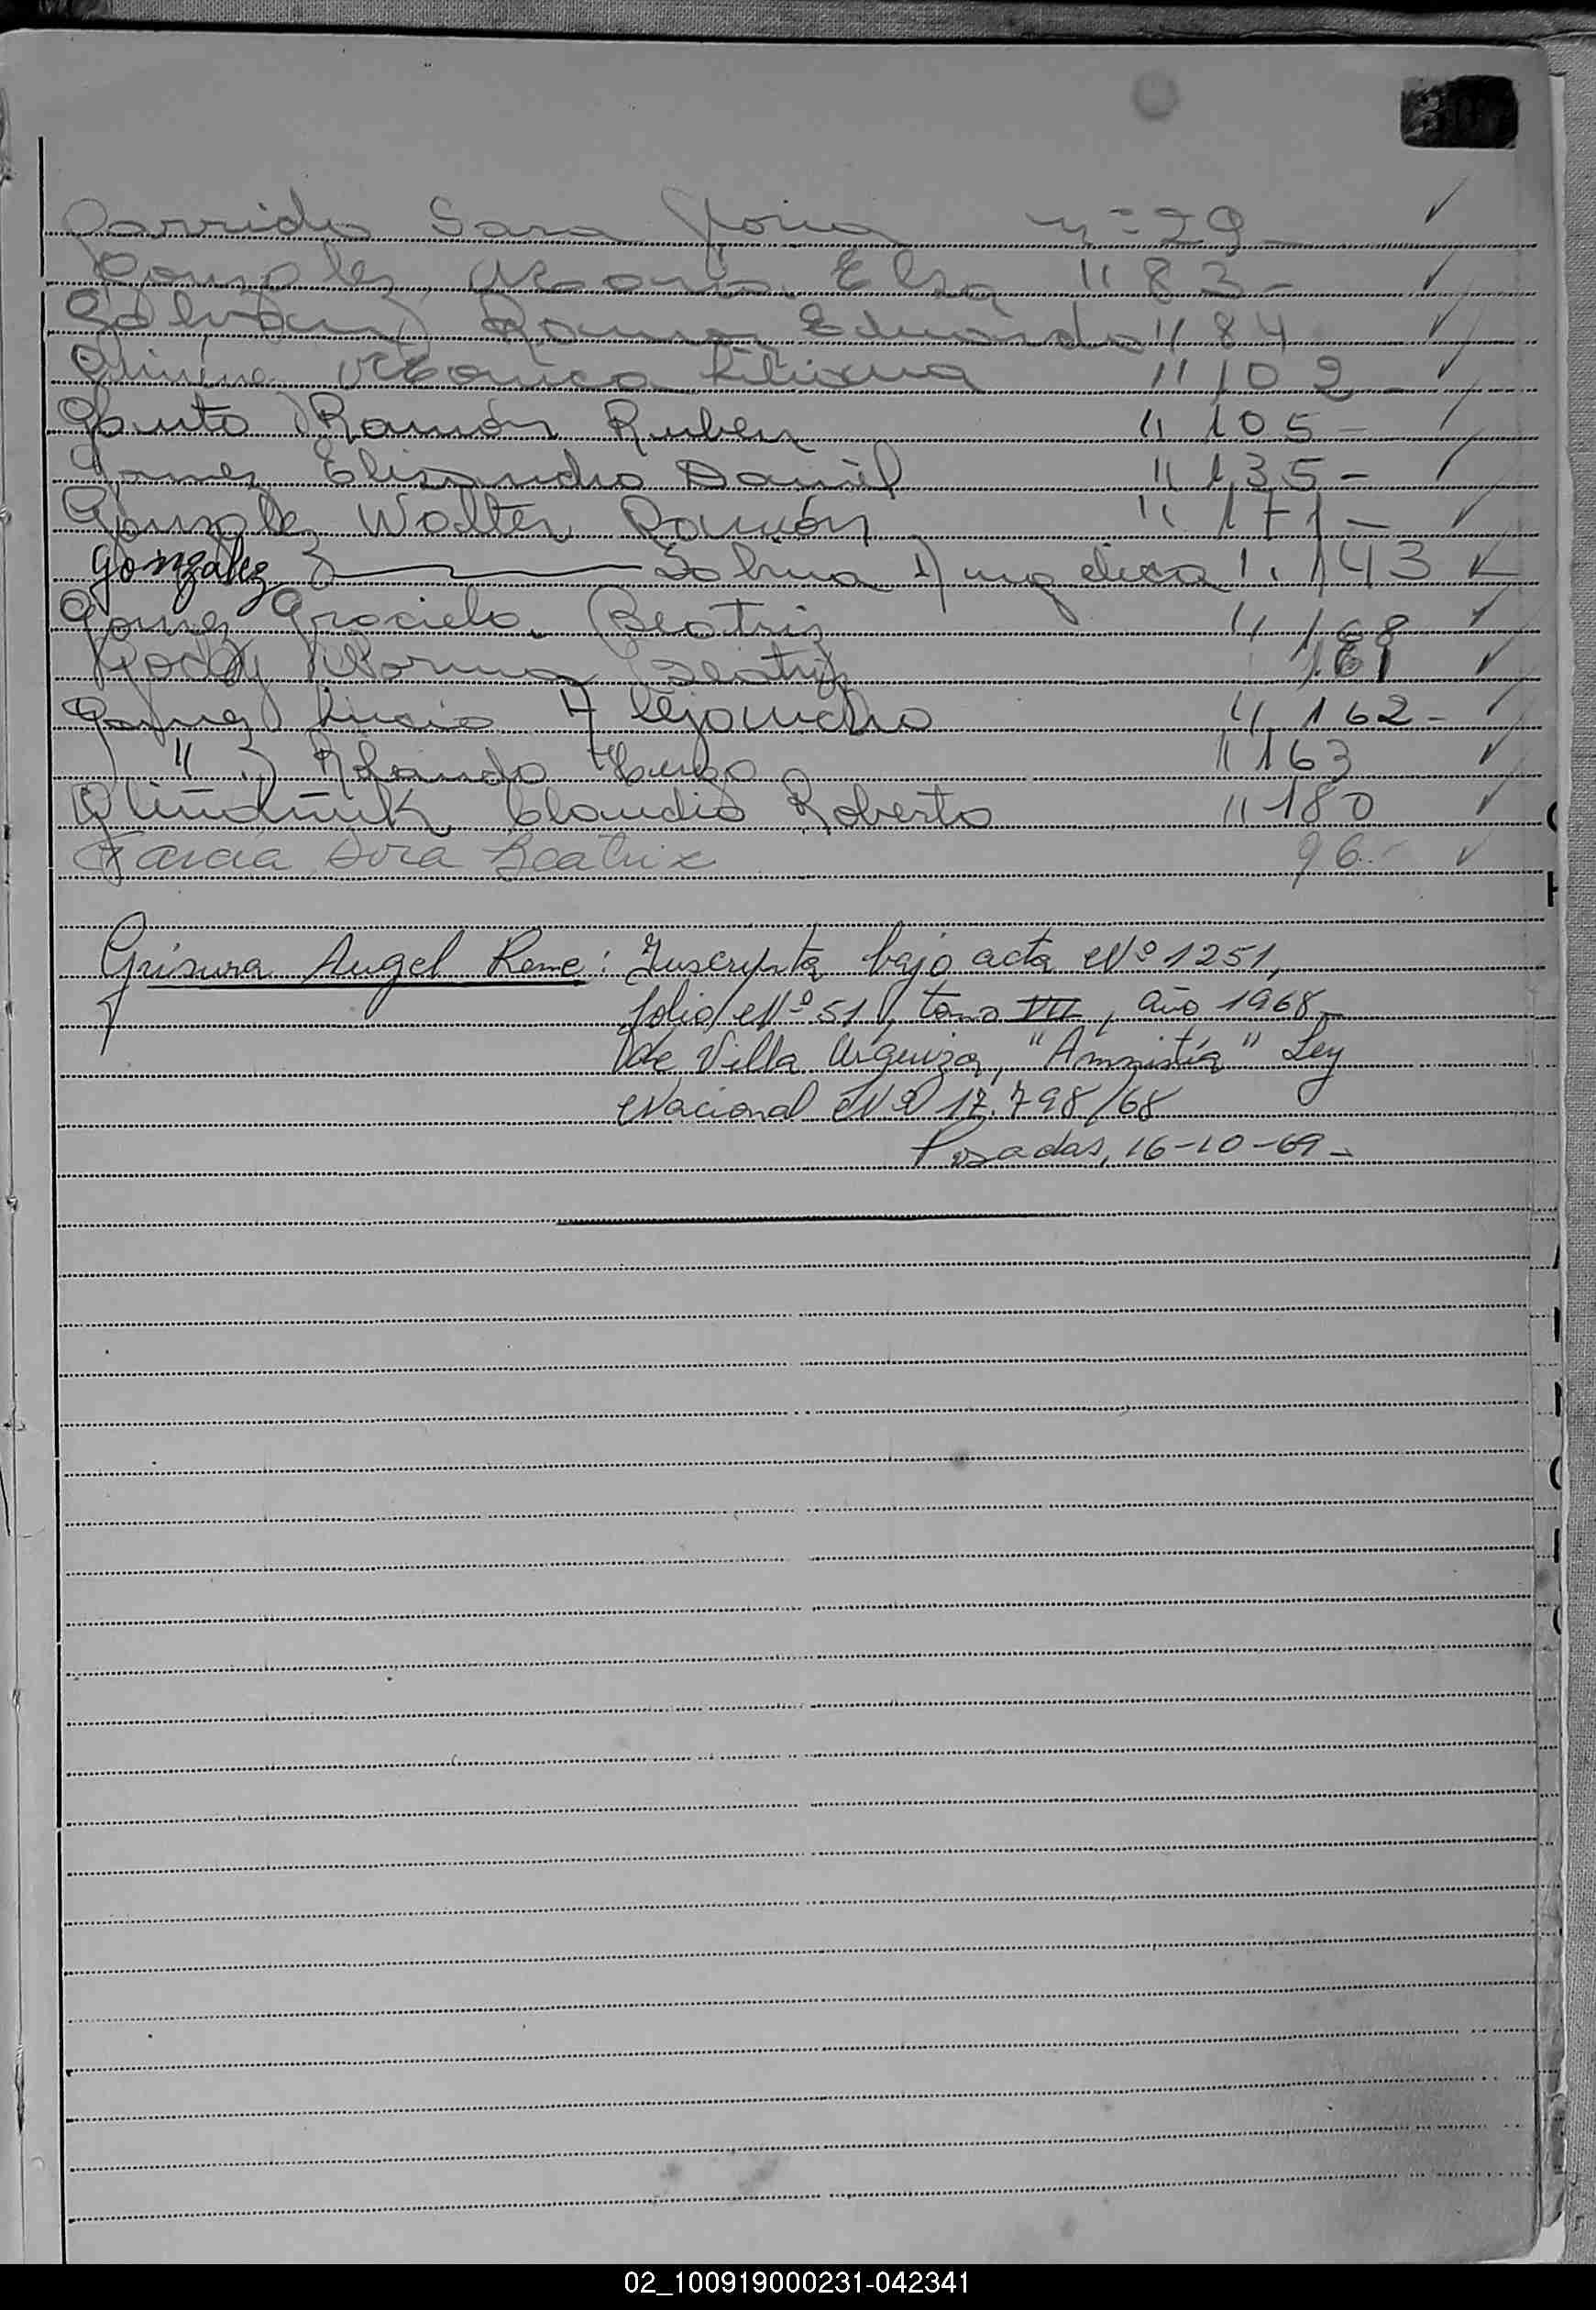 Garrido Sara Gloria nº 29 - ✓
Gonzalez, Maria Elsa " 83 - ✓
Galvan Ramon Eduardo " 84 ✓
Monica Liliana " 102 - ✓
Gauto Ramón Ruben " 105 - ✓
Gomez Elisandro Daniel " 135 - ✓
Gonzalez Walter Ramón " 171 - ✓
Gonzalez Sabina Angelica " 143 ✓
Gomez Graciela Beatriz " 168 ✓
Godoy Norma Beatriz 161 ✓
Gomez Lucio Alejandro " 162 - ✓
" Rolando Hugo " 163 ✓
Claudio Roberto " 180 ✓
Garcia Dora Beatriz 96.- ✓
Grisura Angel Rene: Inscripta bajo acta Nº 1251,
folio Nº 51, tomo VII, año 1968 -
de Villa Urquiza, "Amnistía" Ley
Nacional Nº 17.798/68
Posadas, 16-10-69 -
02_100919000231-042341